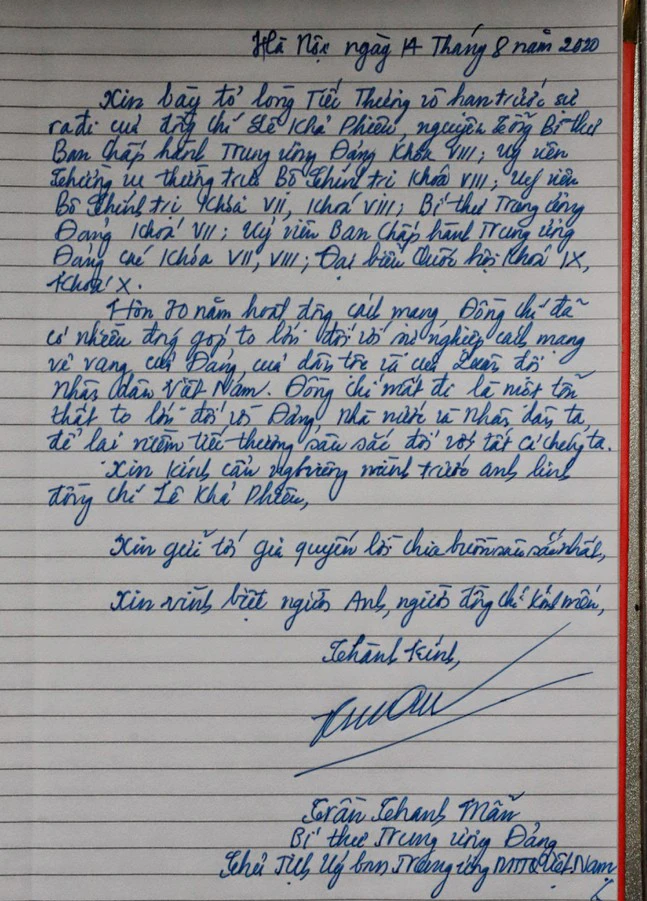 Hà Nội ngày 14 Tháng 8 năm 2020
Xin bày tỏ lòng Tiếc Thương vô hạn trước sự
ra đi của đồng chí Lê Khả Phiêu, nguyên Tổng Bí thư
Ban Chấp hành Trung ương Đảng Khóa VIII; Uỷ viên
Thường vụ thường trực Bộ Chính trị Khóa VIII; Uỷ viên
Bộ Chính trị Khóa VII, Khoá VIII; Bí thư Trung ương
Đảng Khoá VII; Uỷ viên Ban Chấp hành Trung ương
Đảng các Khóa VII, VIII; Đại biểu Quốc hội Khoá IX,
Khoá X.
Hơn 70 năm hoạt động cách mạng, Đồng chí đã
có nhiều đóng góp to lớn đối với sự nghiệp cách mạng
vẻ vang của Đảng, của dân tộc và của Quân đội
nhân dân Việt Nam. Đồng chí mất đi là một tổn
thất to lớn đối với Đảng, Nhà nước và Nhân dân ta,
để lại niềm tiếc thương sâu sắc đối với tất cả chúng ta.
Xin kính cẩn nghiêng mình trước anh linh
đồng chí Lê Khả Phiêu,
Xin gửi tới gia quyến lời chia buồn sâu sắc nhất,
Xin vĩnh biệt người Anh, người đồng chí kính mến,
Thành kính,
Trần Thanh Mẫn
Bí thư Trung ương Đảng
Chủ Tịch Uỷ ban Trung ương MTTQ Việt Nam